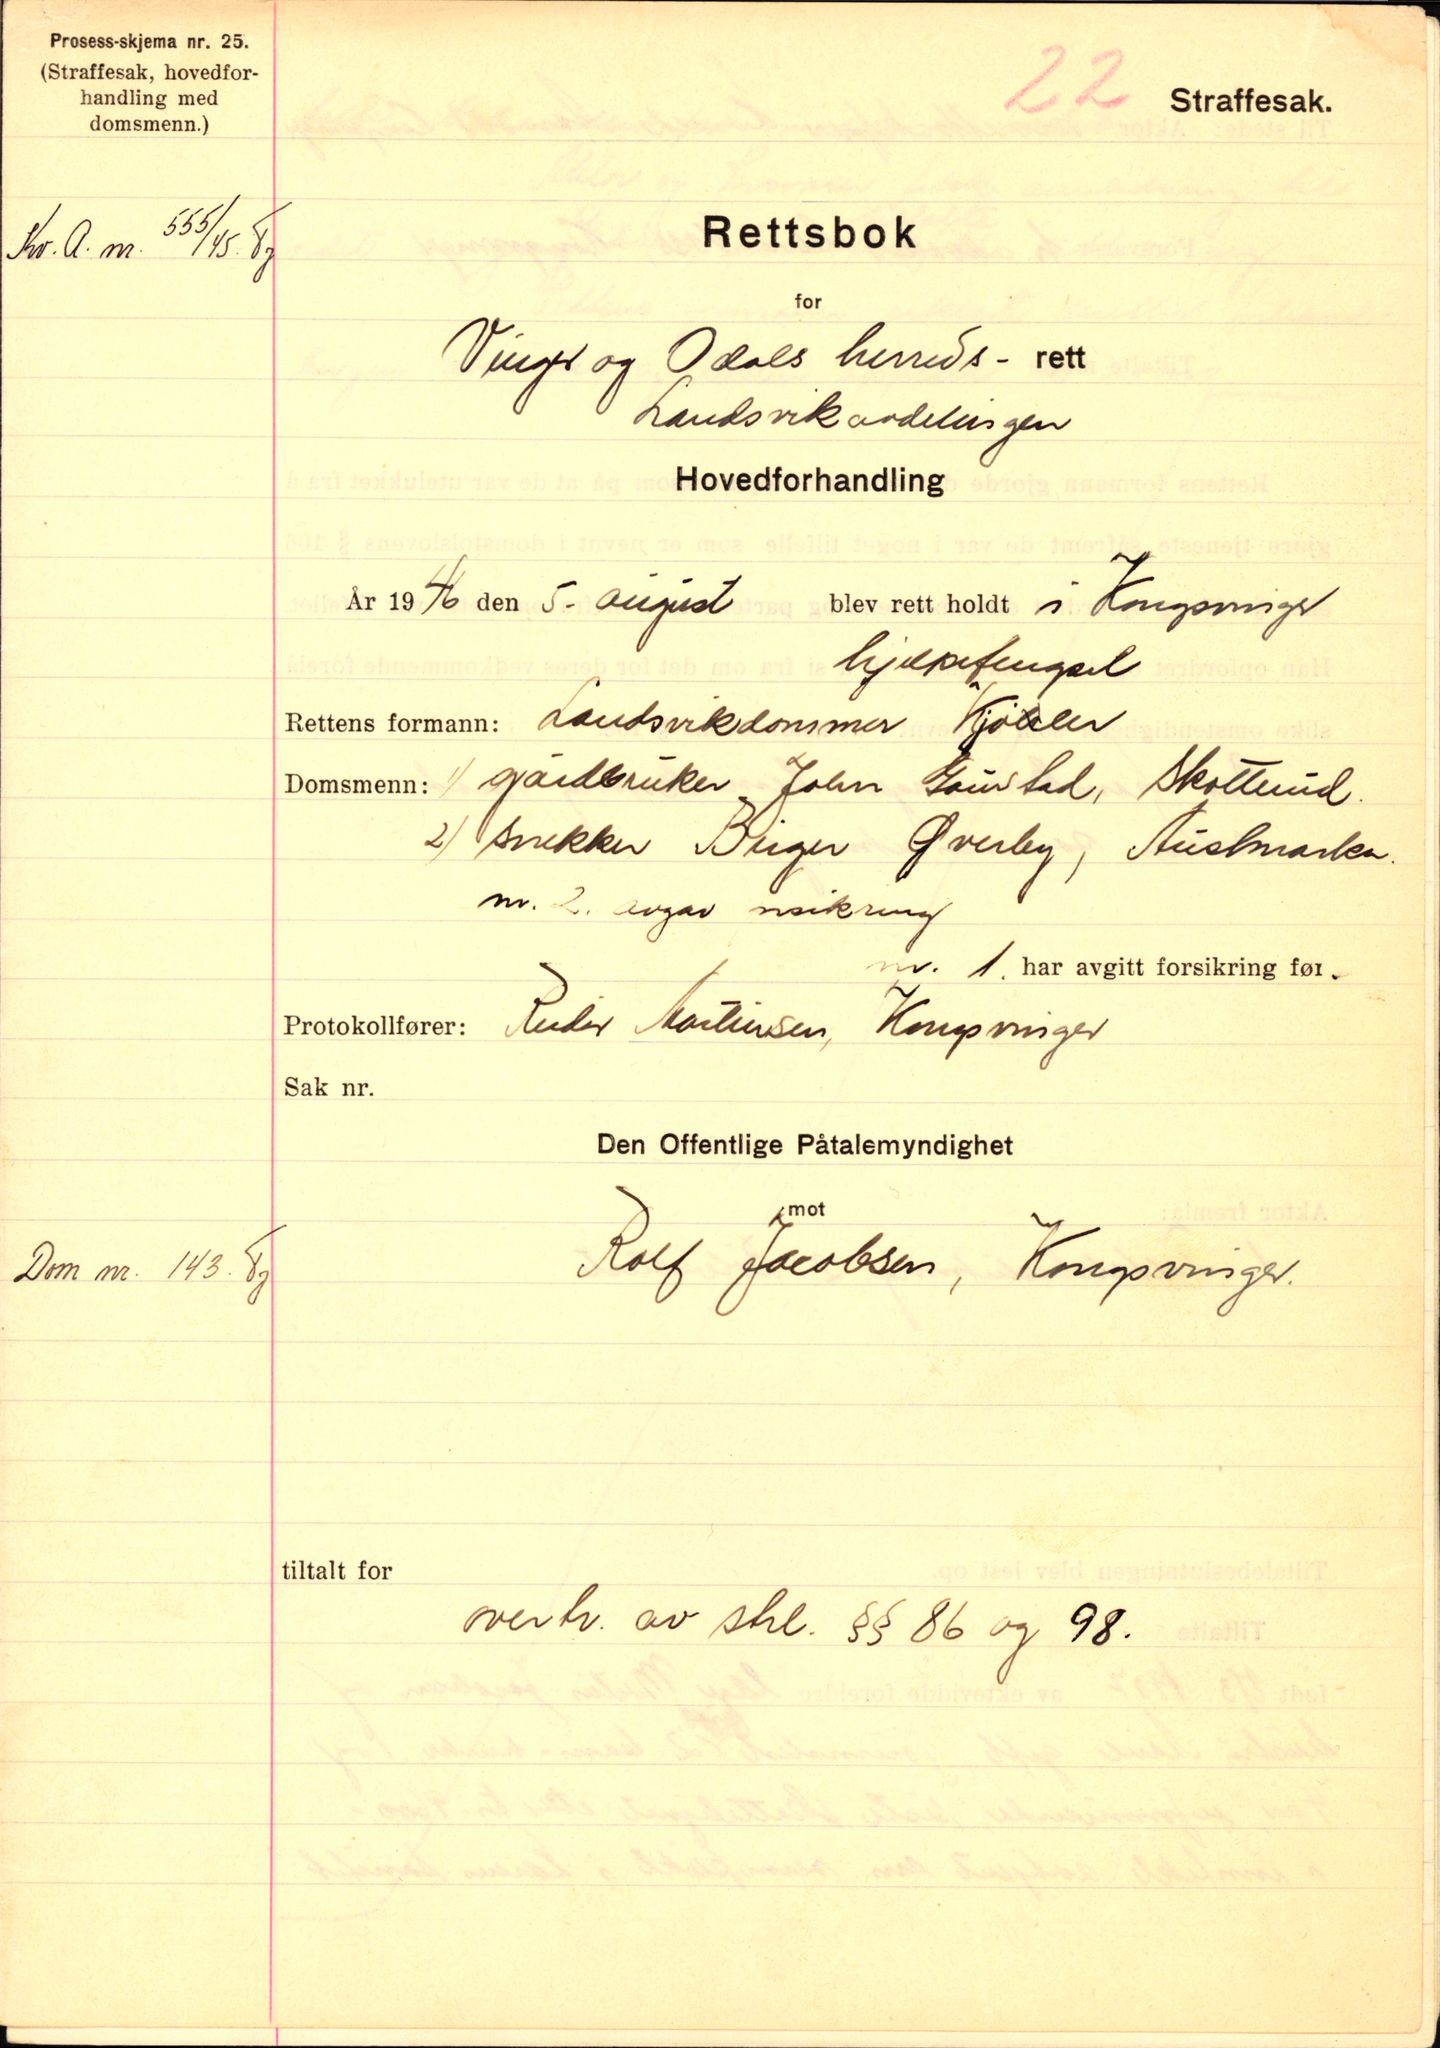 Prosess-skjema nr. 25.
(Straffesak, hovedfor-
handling med
domsmenn.)
22
Straffesak.
A. nr. 555/45.
Rettsbok
for
Vinger og Odals herreds- rett
Landsvikavdelingen
Hovedforhandling
År 1946 den 5. august blev rett holdt i Kongsvinger
hjelpefengsel
Rettens formann: Landsvikdommer
Domsmenn: 1) gårdbruker John Skotterud.
2) snekker Birger Øverby, Austmarka.
nr. 2. avgav
nr. 1. har avgitt forsikring før.
Protokollfører: Reidar Martinsen, Kongsvinger
Sak nr.
Den Offentlige Påtalemyndighet
mot
Rolf Jacobsen, Kongsvinger.
Dom nr. 143.
tiltalt for
overtr. av strl. §§ 86 og 98.